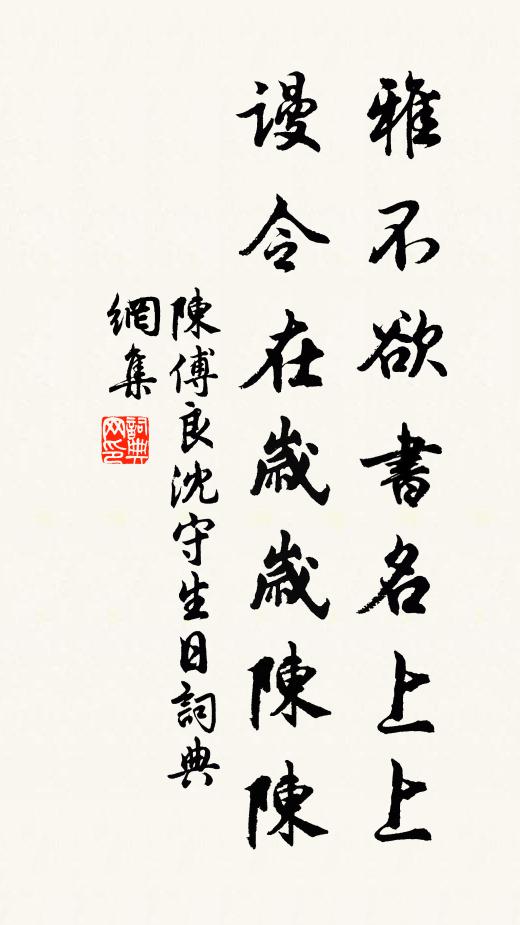 雅不欲書名上上
謾令在歲歲陳陳
陳傅良沈守生日詞典
網集
詞典網印